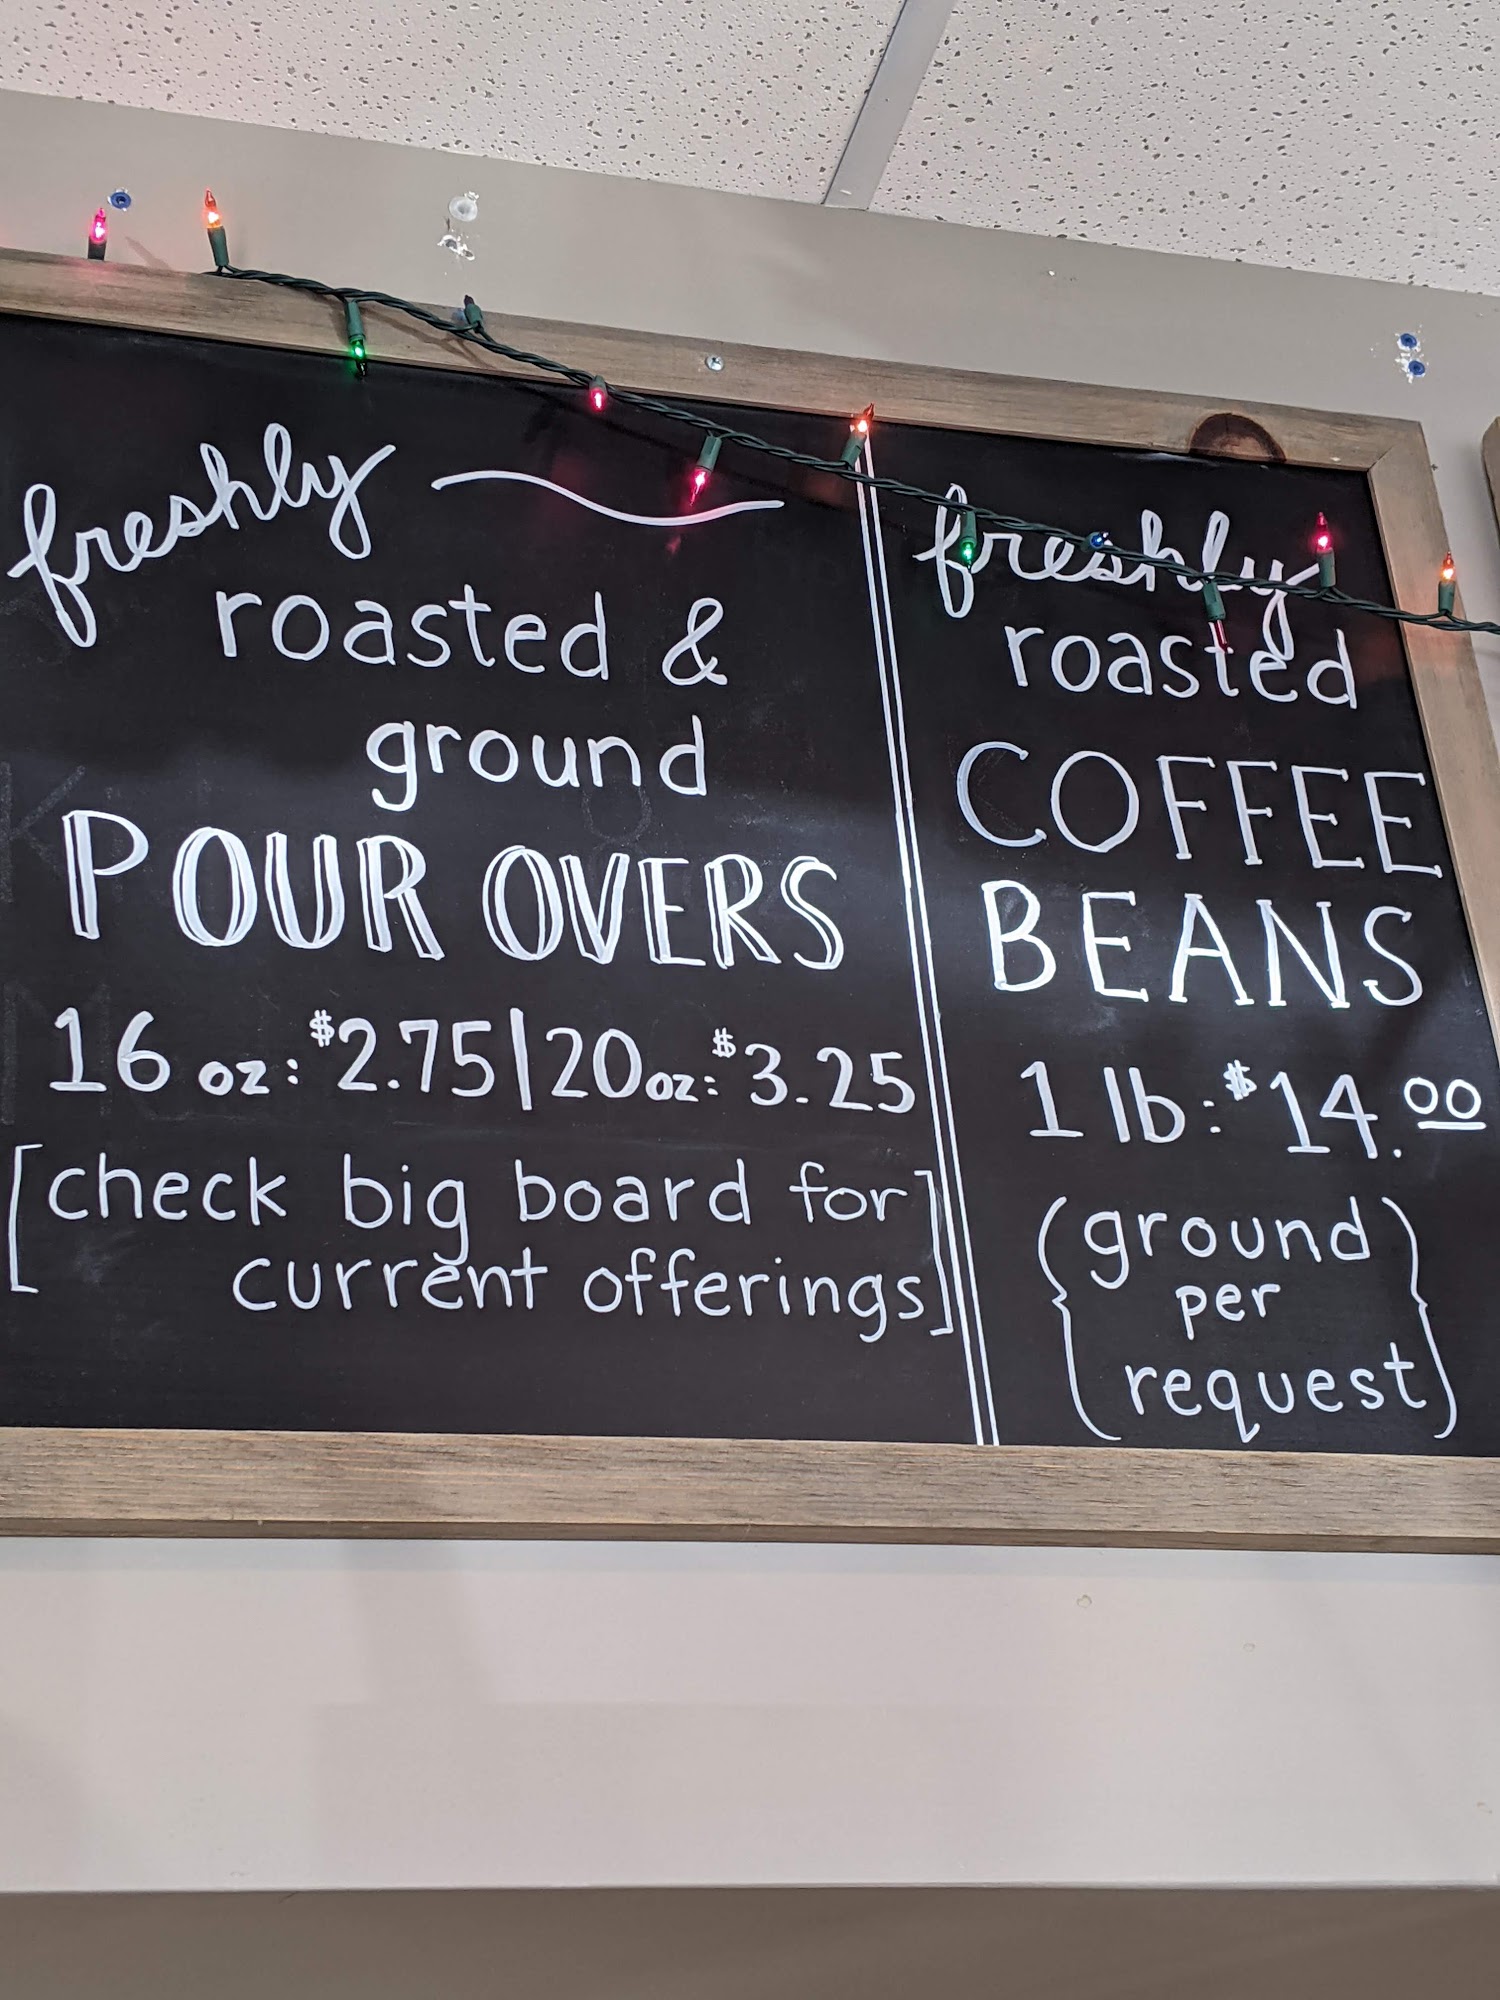 freshly
roasted &
ground
POUR OVERS
16 oz: $2.75|20oz: $3.25
[check big board for
current offerings]
freshly
roasted
COFFEE
BEANS
1 lb: $14.00
(ground
per
request)